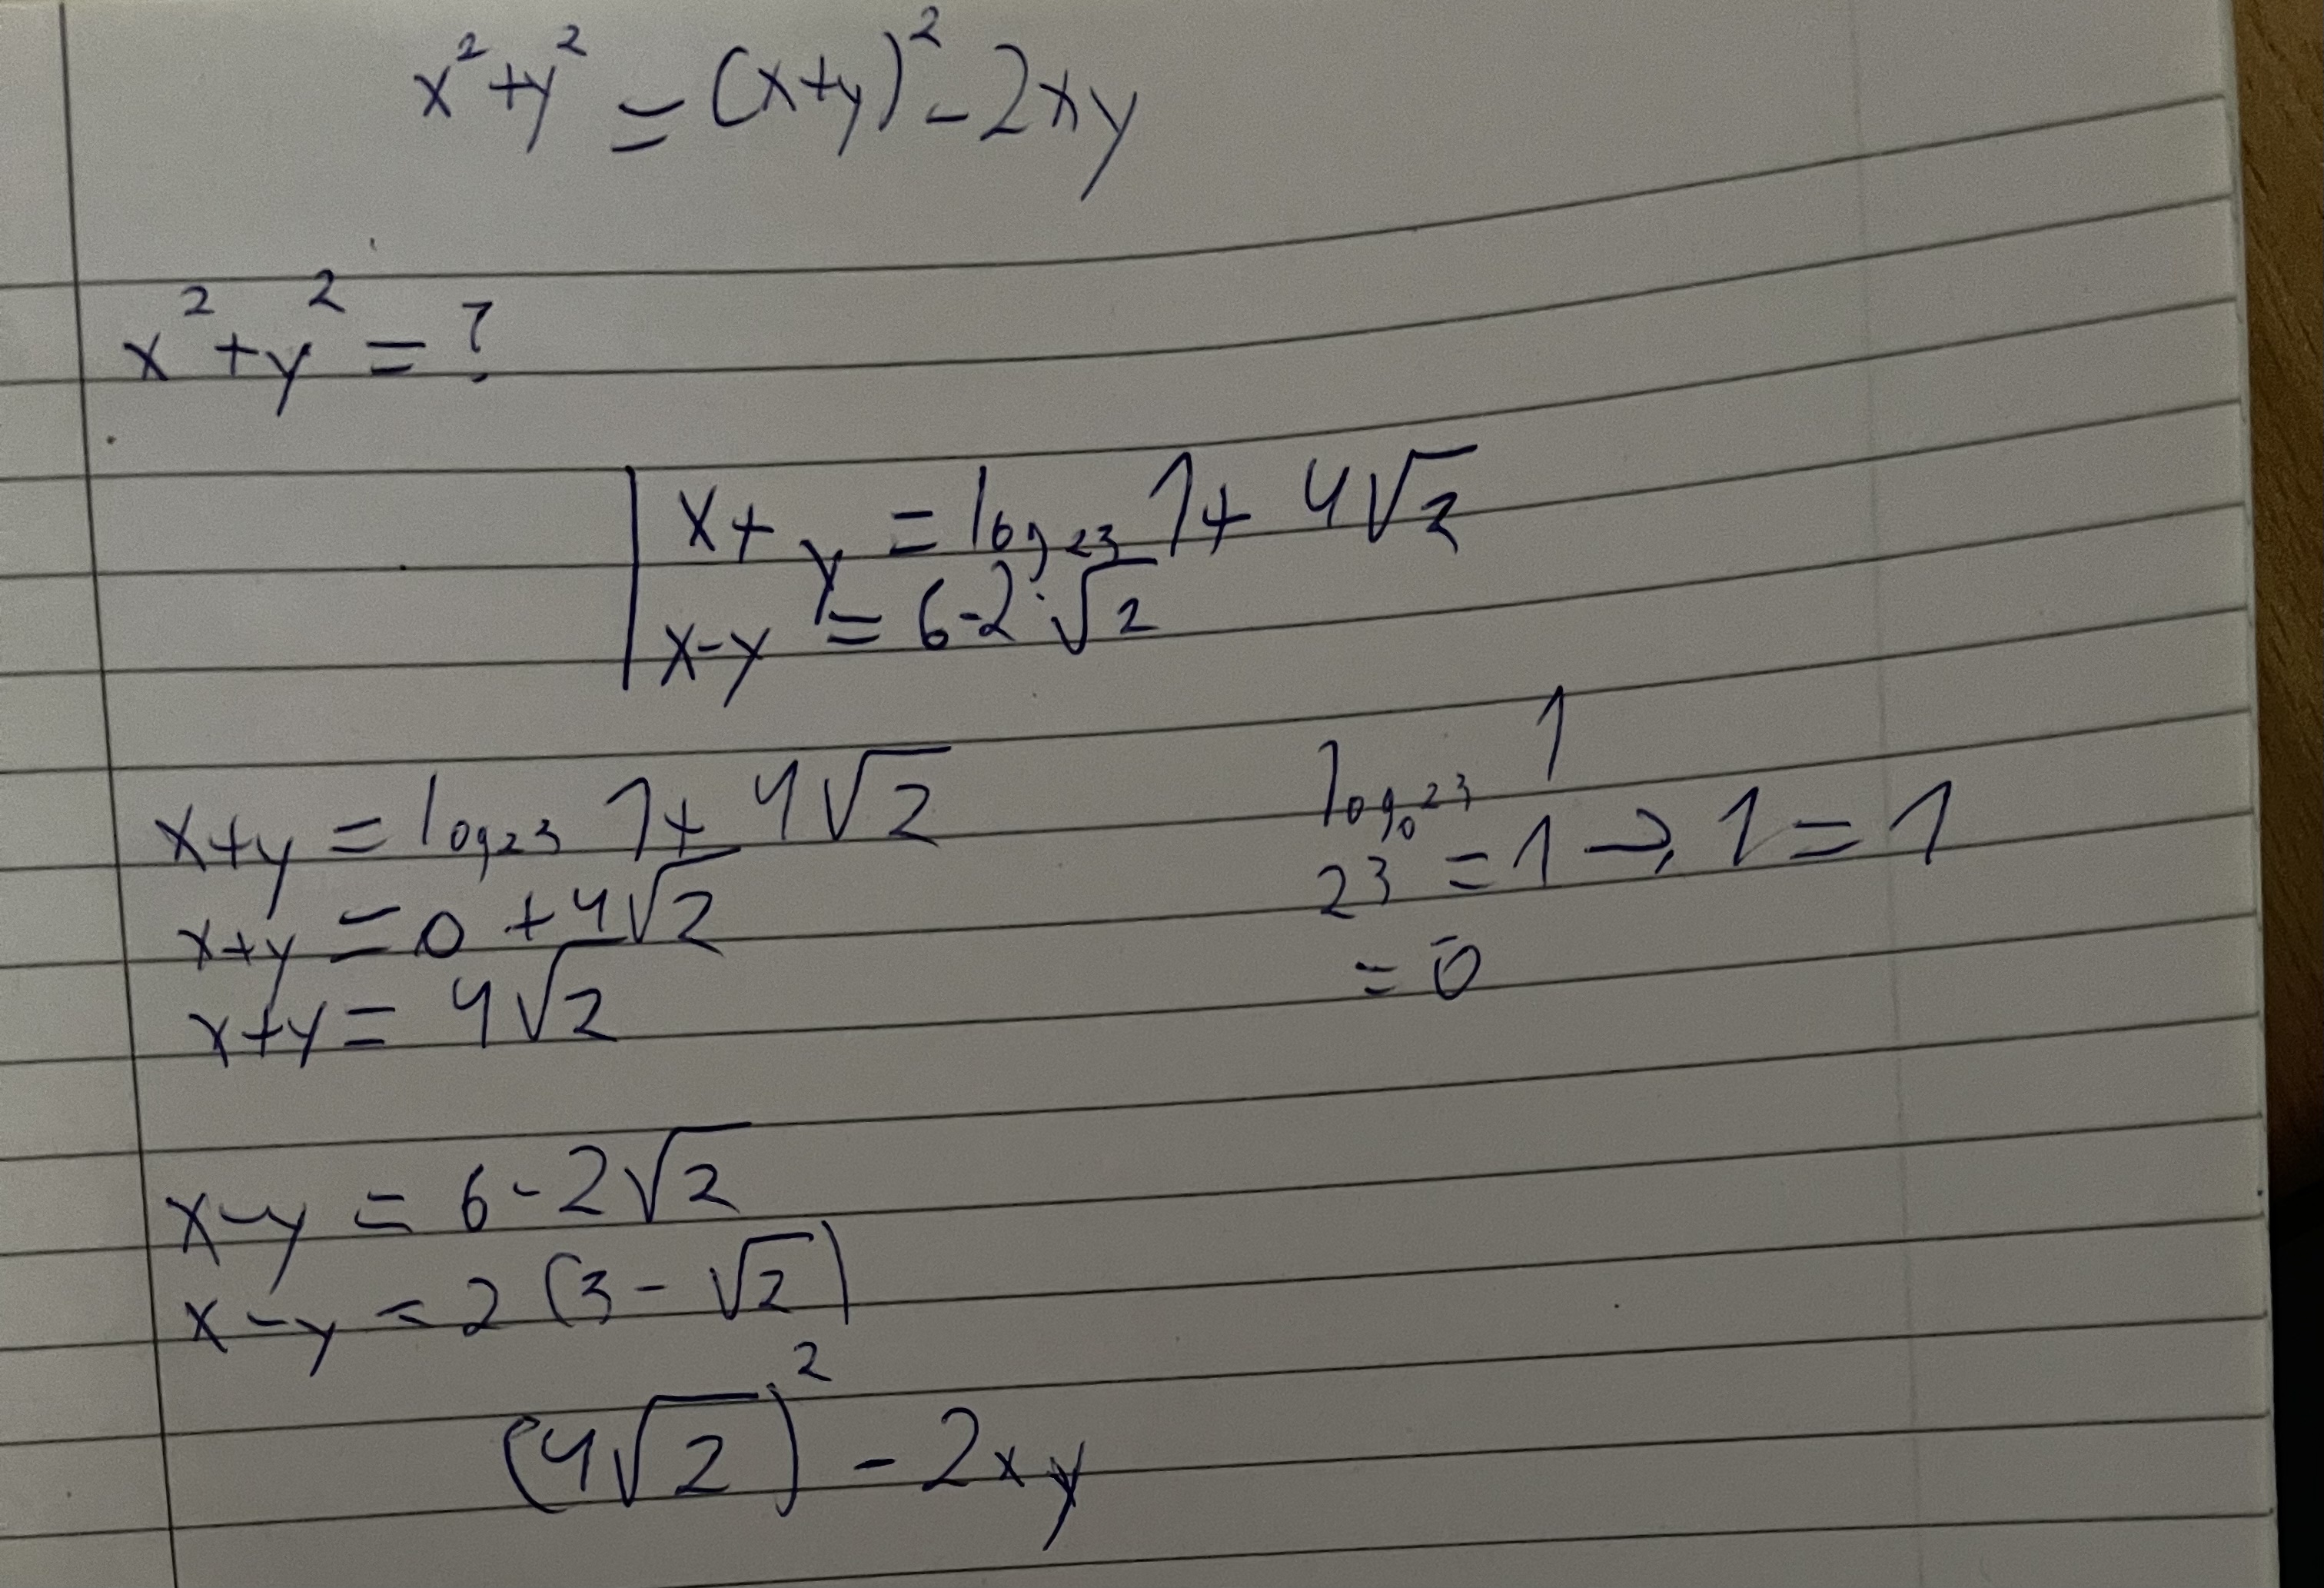 x² + y² = (x+y)² - 2xy
x² + y² = ?
x + y = log₂₃ 1 + 4√2
x - y = 6 - 2·√2
x + y = log₂₃ 1 + 4√2
x + y = 0 + 4√2
x + y = 4√2
log₂₃ 1
23⁰ = 1 → 1 = 1
= 0
x - y = 6 - 2√2
x - y = 2(3 - √2)
(4√2)² - 2xy